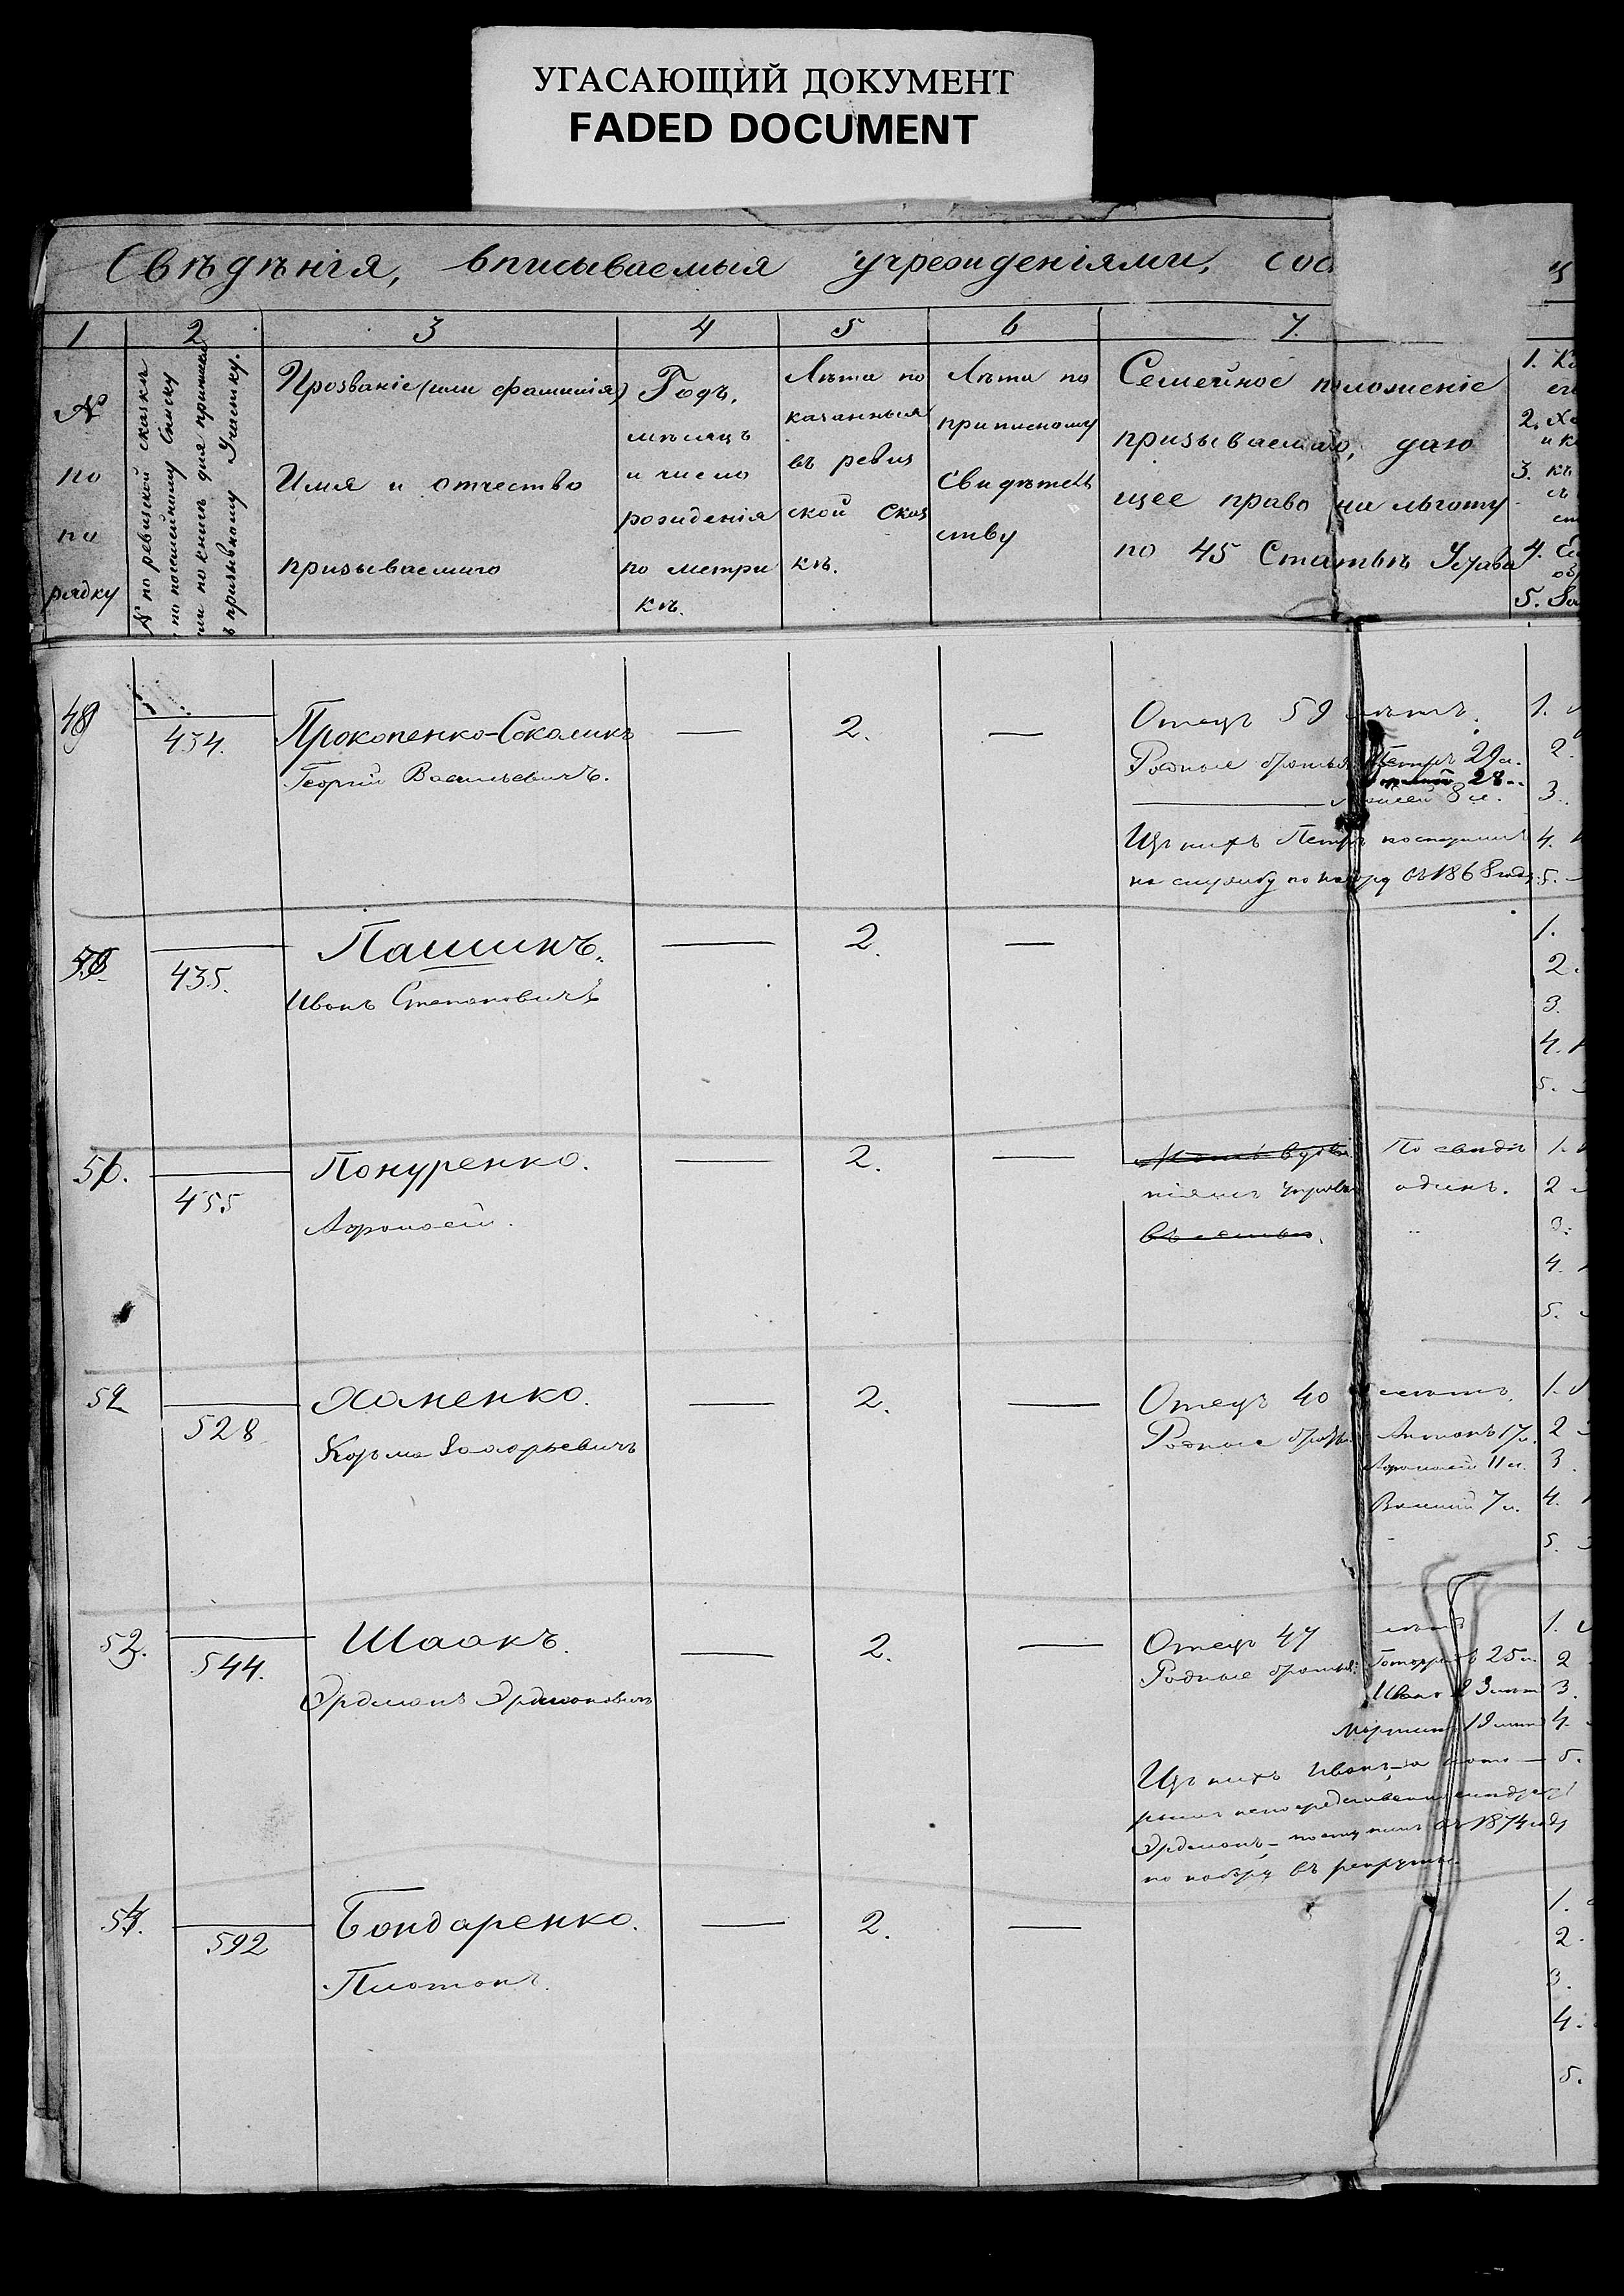 УГАСАЮЩИЙ ДОКУМЕНТ
FADED DOCUMENT
Свѣдѣнія, вписываемыя учрежденіями, сос
1 2 3 4 5 6 7.
№
по
по
рядку
№ по ревизской сказкѣ
по посемейному списку
или по книгѣ для приписки
къ призывному участку.
Прозваніе (или фамилія)
Имя и отчество
призываемаго
Годъ,
мѣсяцъ
и число
рожденія
по метри
кѣ.
Лѣта по
казанныя
въ ревиз
ской сказ
кѣ.
Лѣта по
приписному
свидѣтель
ству
Семейное положеніе
призываемаго, даю
щее право на льготу
по 45 Статьѣ Устава
1.
2.
3.
4.
5.
49
434.
Прокопенко-Соколикъ
Георгій Васильевичъ.
— 2. —
Отецъ 59 лѣтъ.
Родные братья: Петръ 29 л.
28
8 л.
Изъ нихъ Петръ поступилъ
на службу по набору въ 1868 году.
1.
2.
3.
4.
5.
50
435.
Пашинъ.
Иванъ Степановичъ
— 2. —
1.
2.
3.
4.
5.
51.
455
Понуренко.
Афанасій.
— 2. —
одинъ.
въ семьѣ.
1.
2
3.
4.
5.
52
528
Хоменко.
Козьма Захарьевичъ
— 2. —
Отецъ 40 лѣтъ.
Родные братья: Антонъ 17 л.
Афанасій 11 л.
Василій 7 л.
1.
2
3.
4.
5.
53.
544.
Шаакъ.
Эрдманъ Эрдмановичъ
— 2. —
Отецъ 47 лѣтъ
Родные братья: Готфридъ 25 л.
Иванъ 23 лѣтъ
Мартинъ 18 лѣтъ
Изъ нихъ Иванъ—за кото—
рымъ непосредственно слѣдуетъ
Эрдманъ—поступилъ въ 1874 году
по набору въ рекруты.
1.
2
3.
4.
5.
54.
592
Бондаренко.
Платонъ.
— 2. —
1.
2.
3.
4.
5.